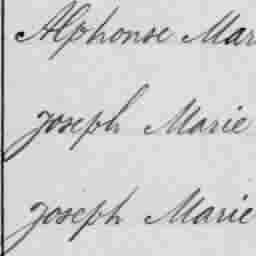 Alphonse Mar
Joseph Marie
Joseph Marie